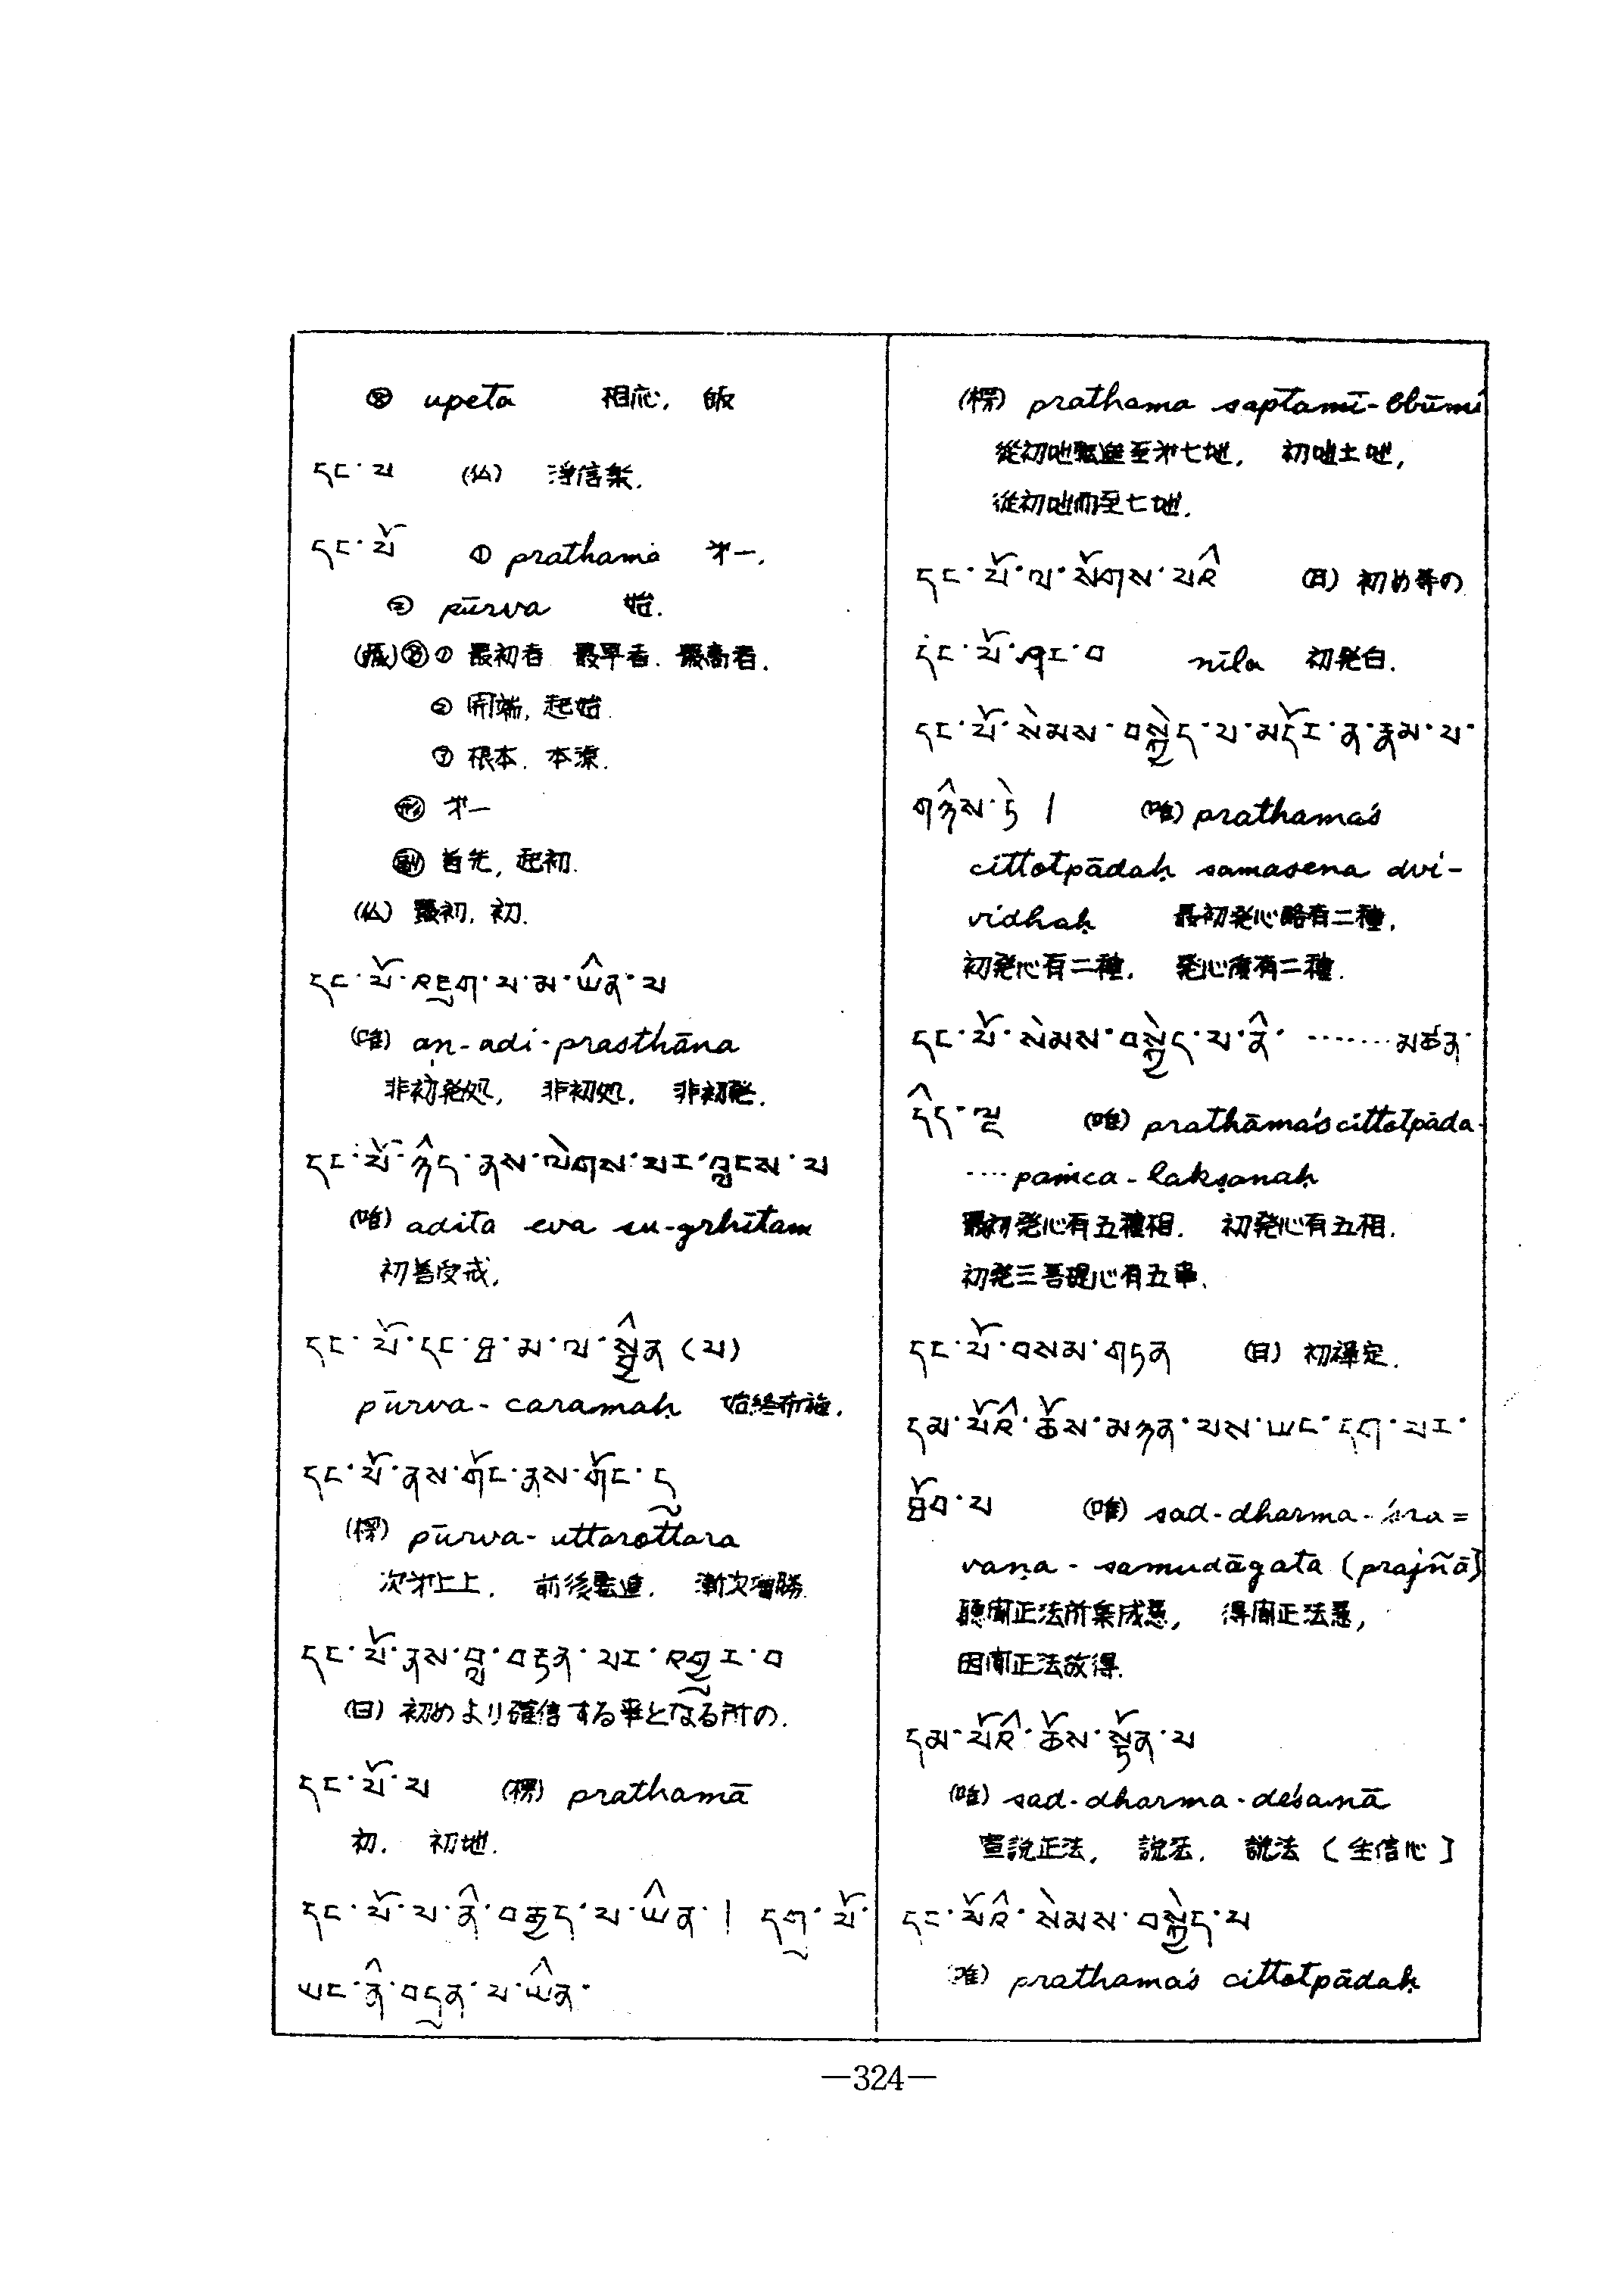 ⑧ upeta 相応, 飯
དང་པ (仏) 浄信楽.
དང་པོ ① prathama 才一.
② pūrva 始.
(蔵) ① 最初者 最早者. 最高者.
② 開端, 起始.
③ 根本. 本源.
㊒ 才一
㊓ 首先, 起初.
(仏) 最初, 初.
དང་པོ་འཇུག་པ་མ་ཡིན་པ
(唯) aṇ-adi-prasthāna
非初発処, 非初処, 非初発.
དང་པོ་ཉིད་ནས་ལེགས་པར་བླངས་པ
(唯) adita eva su-gṛhītam
初善受戒,
དང་པོ་དང་ཐ་མ་ལ་སྦྱིན (པ)
pūrva-caramaḥ 始終布施.
དང་པོ་ནས་གོང་ནས་གོང་དུ
(楞) pūrva-uttarottara
次才上上, 前後転進. 漸次増勝.
དང་པོ་ནས་བླ་བརྟན་པར་འགྱུར་བ
(日) 初めより確信する事となる所の.
དང་པོ་པ (楞) prathamā
初. 初地.
དང་པོ་པ་ནི་བརྒྱད་པ་ཡིན་། དགུ་པོ་
ཡང་ནི་བདུན་པ་ཡིན་
(楞) prathama saptamī-bhūmi
從初地転進至才七地, 初地土地,
從初地而至七地.
དང་པོ་ལ་སོགས་པའི (日) 初め等の
དང་པོ་ཤར་བ nīla 初発白.
དང་པོ་སེམས་བསྐྱེད་པ་མདོར་ན་རྣམ་པ་
གཉིས་ཏེ། (唯) prathamaś
cittotpādaḥ samasena dvi-
vidhaḥ 最初発心略有二種,
初発心有二種, 発心度有二種.
དང་པོ་སེམས་བསྐྱེད་པ་ནི་ ........མཚན་
ཉིད་ལྔ (唯) prathāmaś cittotpāda-
....paṁca-lakṣanaḥ
最初発心有五種相. 初発心有五相.
初発三菩提心有五事.
དང་པོ་བསམ་གཏན (日) 初禅定.
དམ་པོའི་ཆོས་མཉན་པས་ཡང་དག་པར་
ཐོབ་པ (唯) sad-dharma-śra=
vaṇa-samudāgata (prajñā)
聴聞正法所集成慧, 得聞正法慧,
因聞正法故得.
དམ་པོའི་ཆོས་སྟོན་པ
(唯) sad-dharma-deśanā
宣説正法, 説法. 説法〔生信心〕
དང་པོའི་སེམས་བསྐྱེད་པ
(唯) prathamaś cittotpādaḥ
—324—